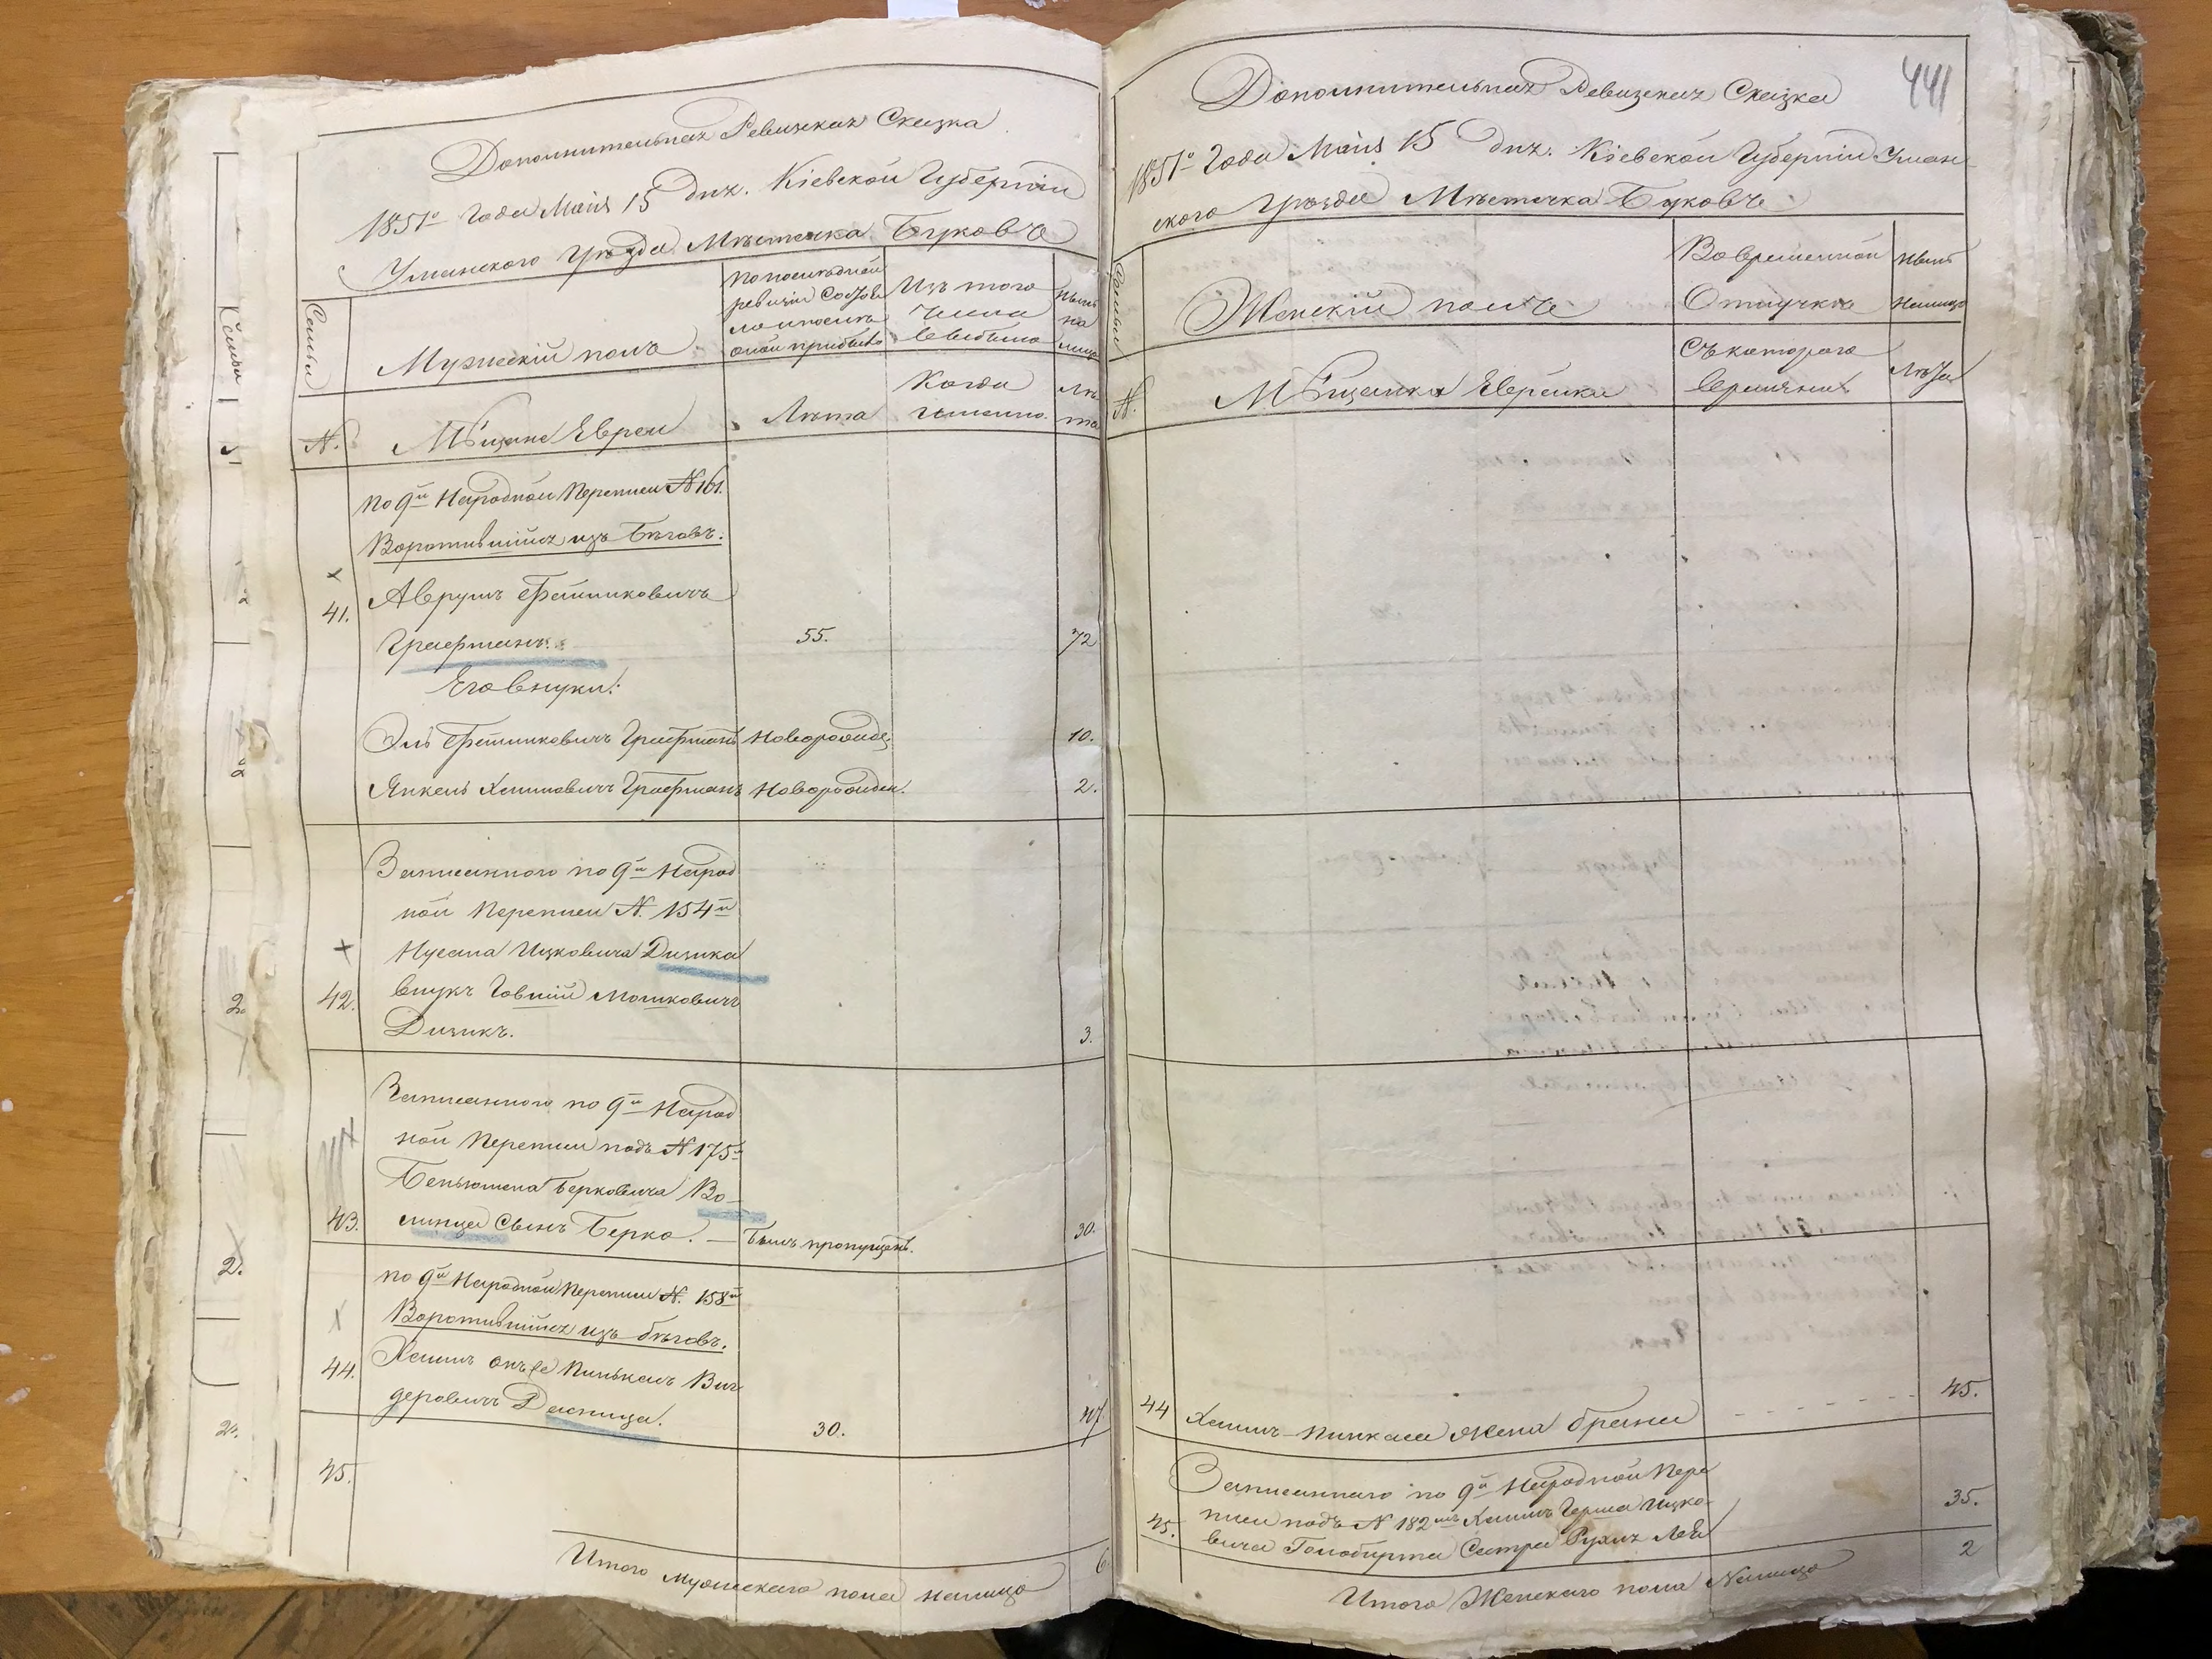 Дополнительная Ревизская Сказка
1851го Года Маія 15 Дня. Кіевской Губерніи
Уманского Уѣзда Мѣстечка Буковъ
Семьи
Мужескій полъ
По последней
ревизіи состояло
или после
оной прибыло
Изъ того
Числа
выбыло
Нынѣ
на
лицо
N.
Мѣщане Евреи
Лѣта
Когда
именно.
Лѣ
та
по 9й Народной Переписи N 161.
Воротившійся изъ Бѣговъ.
41.
Аврумъ Файшиковичъ
Графманъ.
55.
72
Его внуки:
Эль Файшиковичъ Графманъ
Новорожде.
10.
Янкель Хаимовичъ Графманъ
Новорожден.
2.
Записанного по 9й Народ
ной Переписи N. 154й
Нусана Ицковича Дизика
42.
внукъ Говшій Мошковичъ
Дизикъ.
3.
Записанного по 9й Народ
ной Переписи подъ N 175й
Беньюмена Берковича Во-
43.
линца Сынъ Берко. —
Былъ пропущенъ.
30.
по 9й Народной Переписи N. 158й
Воротившійся изъ бѣговъ.
44.
Хаимъ онъ же Пинькасъ Виг
деровичъ Десница.
30.
47
45.
Итого Мужескаго пола налицо
6
441
Дополнительная Ревизская Сказка
1851го Года Маія 15 Дня. Кіевской Губерніи Уман
ского Уѣзда Мѣстечка Буковъ
Семьи
Женскій полъ
Во временной
Отлучкѣ
Нынѣ
налицо
N.
Мѣщанки Еврейки
Съ котораго
времяни
Лѣта
44
Хаимъ-Пинкаса жена Брана
45.
Записаннаго по 9й Народной Пере
45.
писи подъ N 182мъ Хаимъ Герша Ицко-
вича Голобирта Сестра Рухля Лея
35.
Итого Женскаго пола Налицо
2